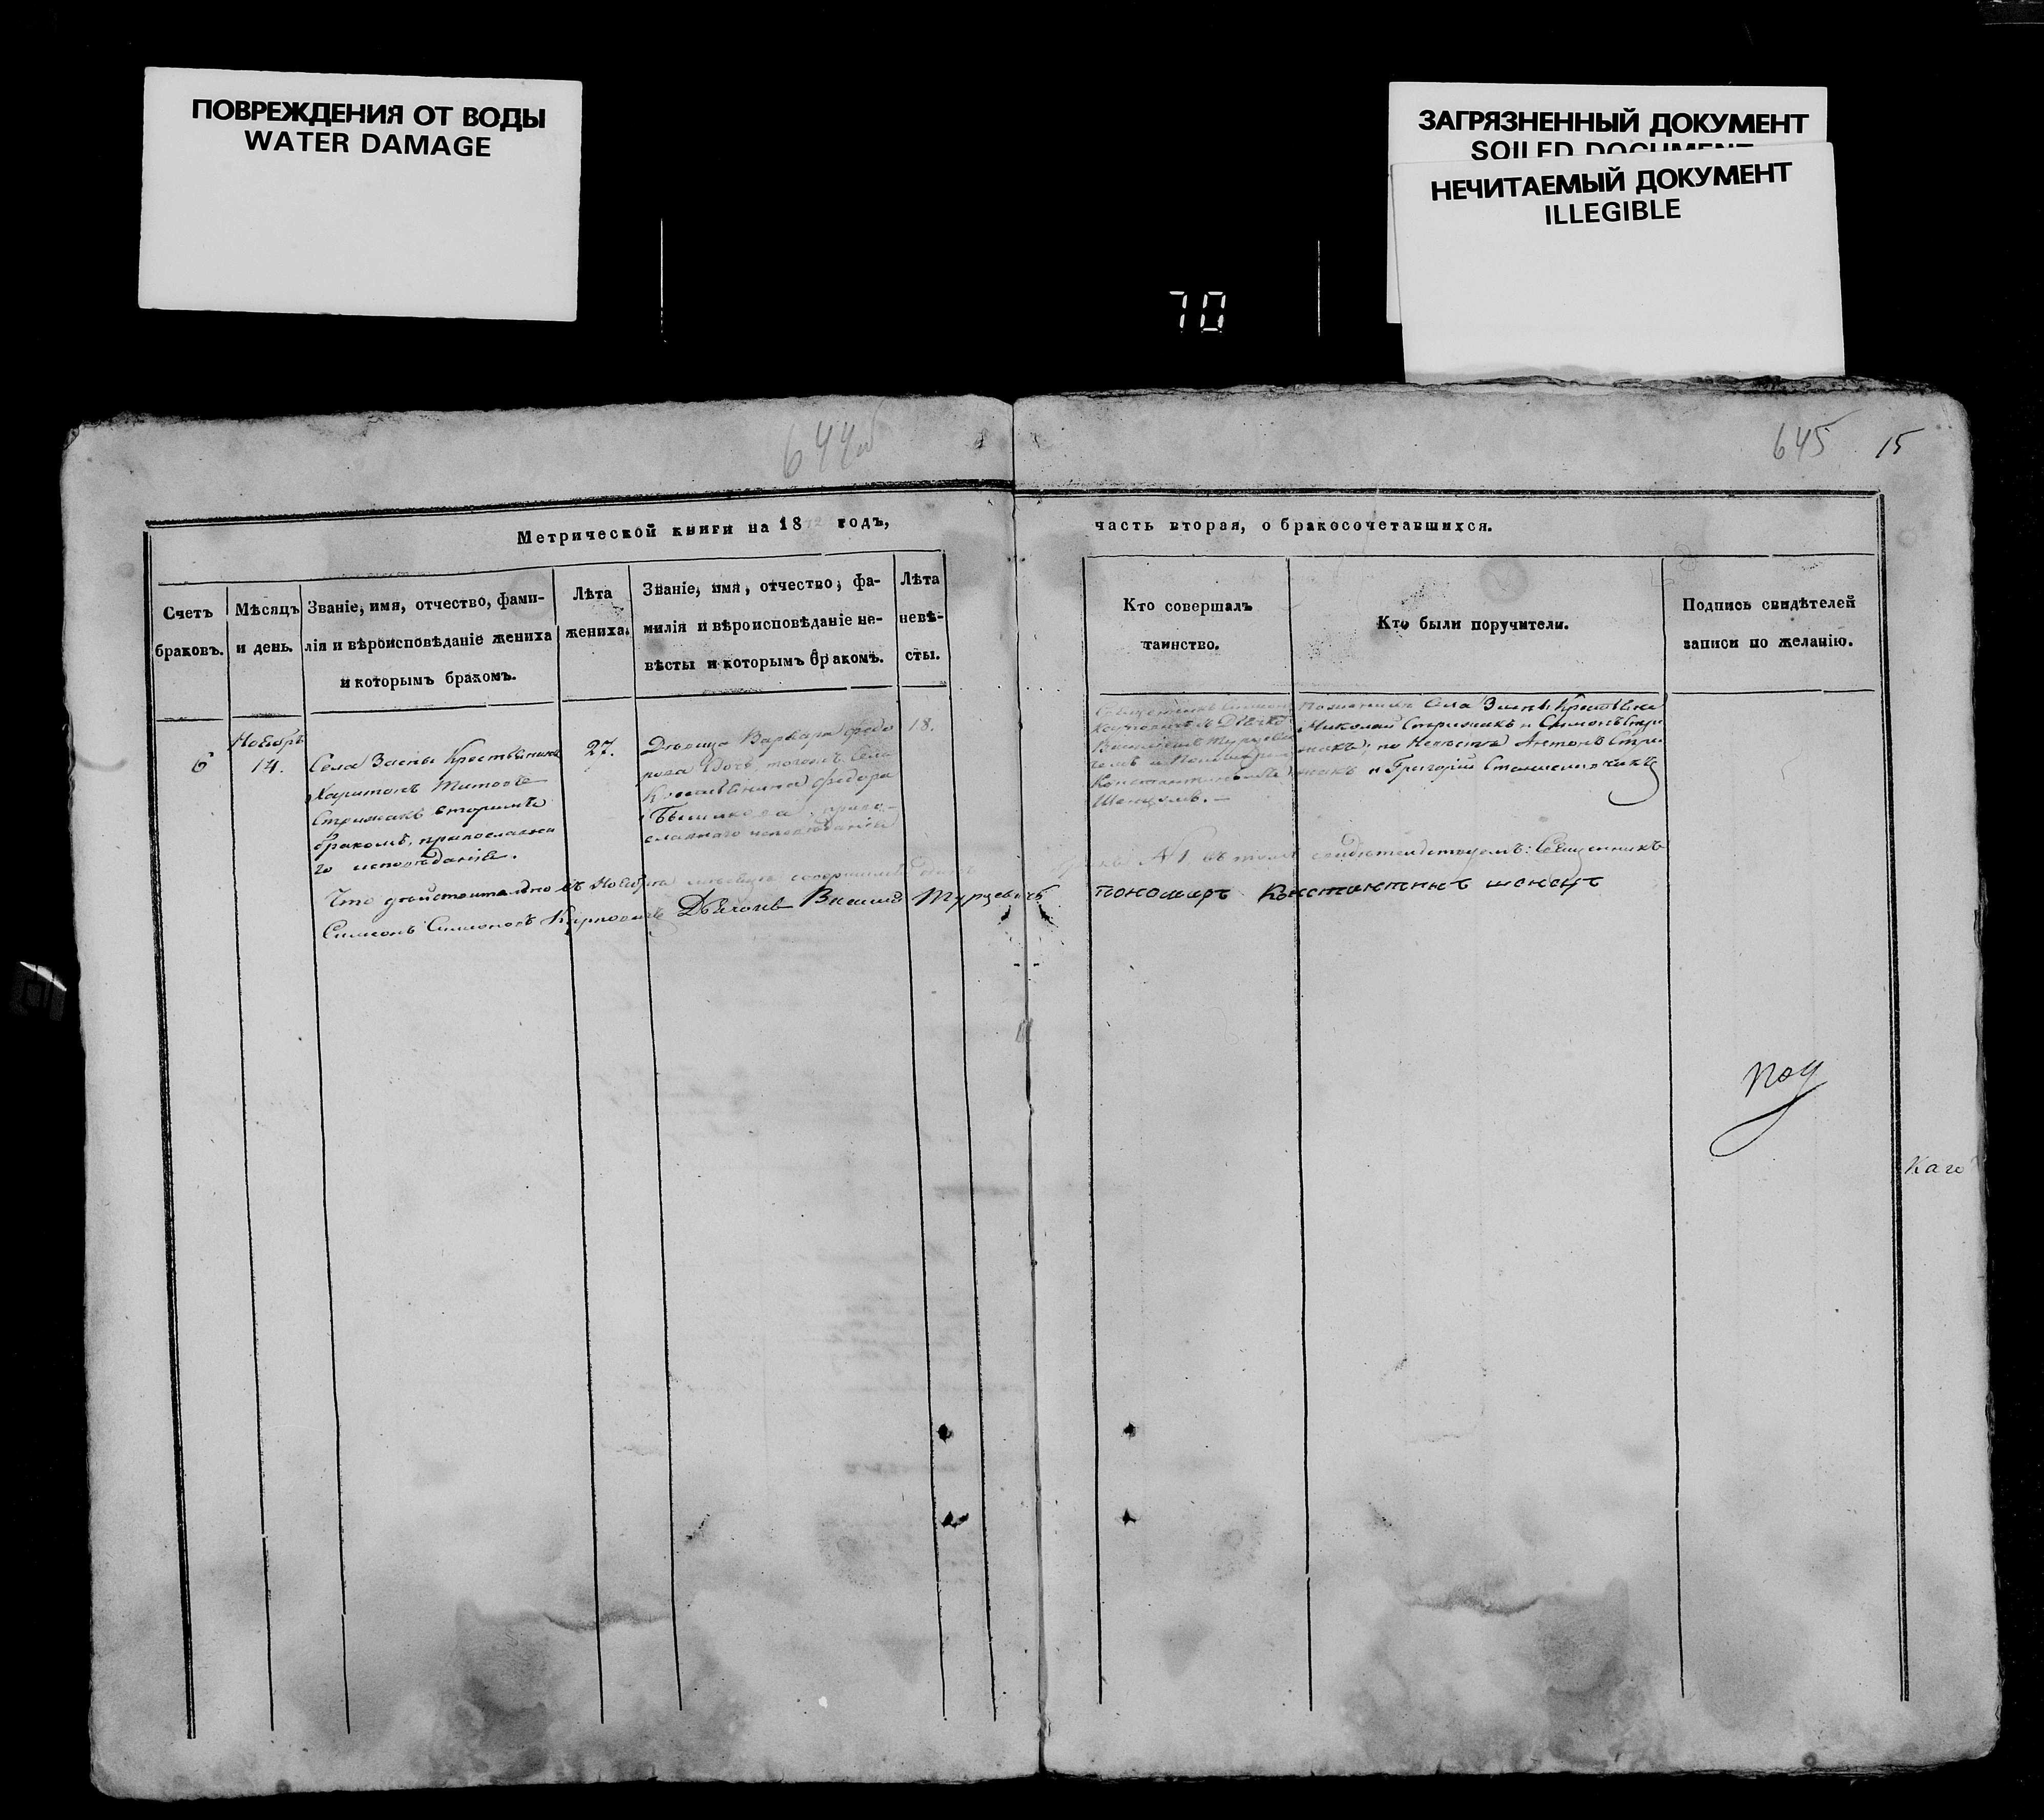 ПОВРЕЖДЕНИЯ ОТ ВОДЫ
WATER DAMAGE
ЗАГРЯЗНЕННЫЙ ДОКУМЕНТ
SOILED DOCUMENT
НЕЧИТАЕМЫЙ ДОКУМЕНТ
ILLEGIBLE
70
644об
645 15
Метрической книги на 18 годъ,
часть вторая, о бракосочетавшихся.
Счетъ
браковъ.
Мѣсяцъ
и день.
Званіе, имя, отчество, фами-
лія и вѣроисповѣданіе жениха
и которымъ бракомъ.
Лѣта
жениха.
Званіе, имя, отчество, фа-
милія и вѣроисповѣданіе не-
вѣсты и которымъ бракомъ.
Лѣта
невѣ-
сты.
Кто совершалъ
таинство.
Кто были поручители.
Подпись свидѣтелей
записи по желанію.
6
Ноябрь
14.
Села Крестьянинъ
Харитонъ Титовъ
Стрижакъ вторымъ
бракомъ, православна
го исповѣданія.
27.
Дѣвица Варвара Федо
рова Дочь тогожъ Села
Крестьянина Федора
право-
славнаго исповѣданія
18.
Священникъ Симеонъ
Карповичъ съ Дьячко
Василіемъ Турцеви
чемъ и Пономаремъ
Константиномъ
Шенцомъ.
По женихѣ Села Крестьяне
Николай Стрижакъ и Симонъ Стри
жакъ; по Невѣстѣ Антонъ Стри
жакъ и Григорій
Что дѣйствительно въ Ноябрѣ мѣсяцѣ совершился одинъ бракъ № 1 въ томъ свидѣтельствуемъ: Священникъ
Симеонъ Симеоновъ Карповичъ Дьячокъ Василій Турцевичъ пономарь Константинъ шенецъ
под
каго